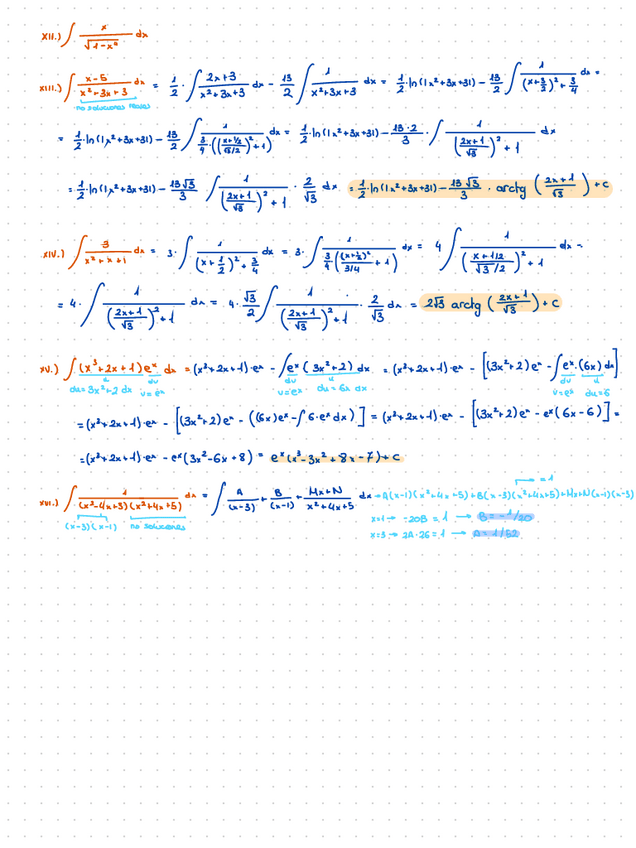 xii.) ∫ x/√(1-x⁴) dx
xiii.) ∫ (x-5)/(x²+3x+3) dx = 1/2 · ∫ (2x+3)/(x²+3x+3) dx - 13/2 ∫ 1/(x²+3x+3) dx = 1/2 · ln(|x²+3x+3|) - 13/2 ∫ 1/((x+3/2)²+3/4) dx =
no soluciones reales
= 1/2 · ln(|x²+3x+3|) - 13/2 ∫ 1/(3/4 · (((x+1/2)/(√3/2))²+1)) dx = 1/2 · ln(|x²+3x+3|) - 13·2/3 · ∫ 1/(((2x+1)/√3)²+1) dx
= 1/2 · ln(|x²+3x+3|) - 13√3/3 ∫ 1/(((2x+1)/√3)²+1) · 2/√3 dx = 1/2 · ln(|x²+3x+3|) - 13√3/3 · arctg ((2x+1)/√3) + c
xiv.) ∫ 3/(x²+x+1) dx = 3 · ∫ 1/((x+1/2)²+3/4) dx = 3 · ∫ 1/(3/4((x+1/2)²/(3/4)+1)) dx = 4 ∫ 1/(((x+1/2)/(√3/2))²+1) dx =
= 4 · ∫ 1/(((2x+1)/√3)²+1) dx = 4 · √3/2 ∫ 1/(((2x+1)/√3)²+1) · 2/√3 dx = 2√3 arctg ((2x+1)/√3) + c
xv.) ∫ (x³+2x+1) eˣ dx = (x³+2x+1)·eˣ - ∫ eˣ (3x²+2) dx = (x³+2x+1)·eˣ - [(3x²+2)eˣ - ∫ eˣ·(6x) dx]
u dv dv u dv u
du=3x²+2 dx v=eˣ v=eˣ du=6x dx v=eˣ du=6
= (x³+2x+1)·eˣ - [(3x²+2)eˣ - ((6x)eˣ - ∫ 6·eˣ dx)] = (x³+2x+1)·eˣ - [(3x²+2)eˣ - eˣ(6x-6)] =
= (x³+2x+1)·eˣ - eˣ(3x²-6x+8) = eˣ(x³-3x²+8x-7)+c
xvi.) ∫ 1/((x²-4x+3)(x²+4x+5)) dx = ∫ A/(x-3) + B/(x-1) + (Mx+N)/(x²+4x+5) dx → A(x-1)(x²+4x+5)+B(x-3)(x²+4x+5)+Mx+N(x-1)(x-3) = 1
(x-3)(x-1) no soluciones
x=1 → -20B = 1 → B = -1/20
x=3 → 2A·26 = 1 → A = 1/52